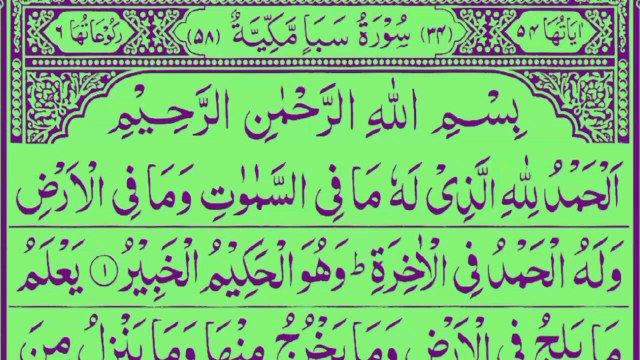 اٰیَاتُهَا ۵۴ (۳۴) سُوْرَةُ سَبَاٍ مَّكِّيَّةٌ (۵۸) رُكُوْعَاتُهَا ۶
بِسْمِ اللّٰهِ الرَّحْمٰنِ الرَّحِيْمِ
اَلْحَمْدُ لِلّٰهِ الَّذِیْ لَهٗ مَا فِی السَّمٰوٰتِ وَمَا فِی الْاَرْضِ
وَلَهُ الْحَمْدُ فِی الْاٰخِرَةِ ؕ وَهُوَ الْحَكِیْمُ الْخَبِیْرُ ۝۱ یَعْلَمُ
مَا یَلِجُ فِی الْاَرْضِ وَمَا یَخْرُجُ مِنْهَا وَمَا یَنْزِلُ مِنَ